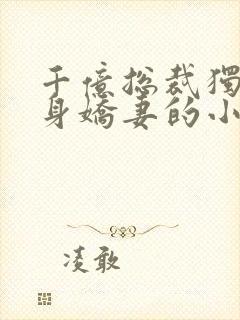 千億总裁獨
身嬌妻的小
凌敢